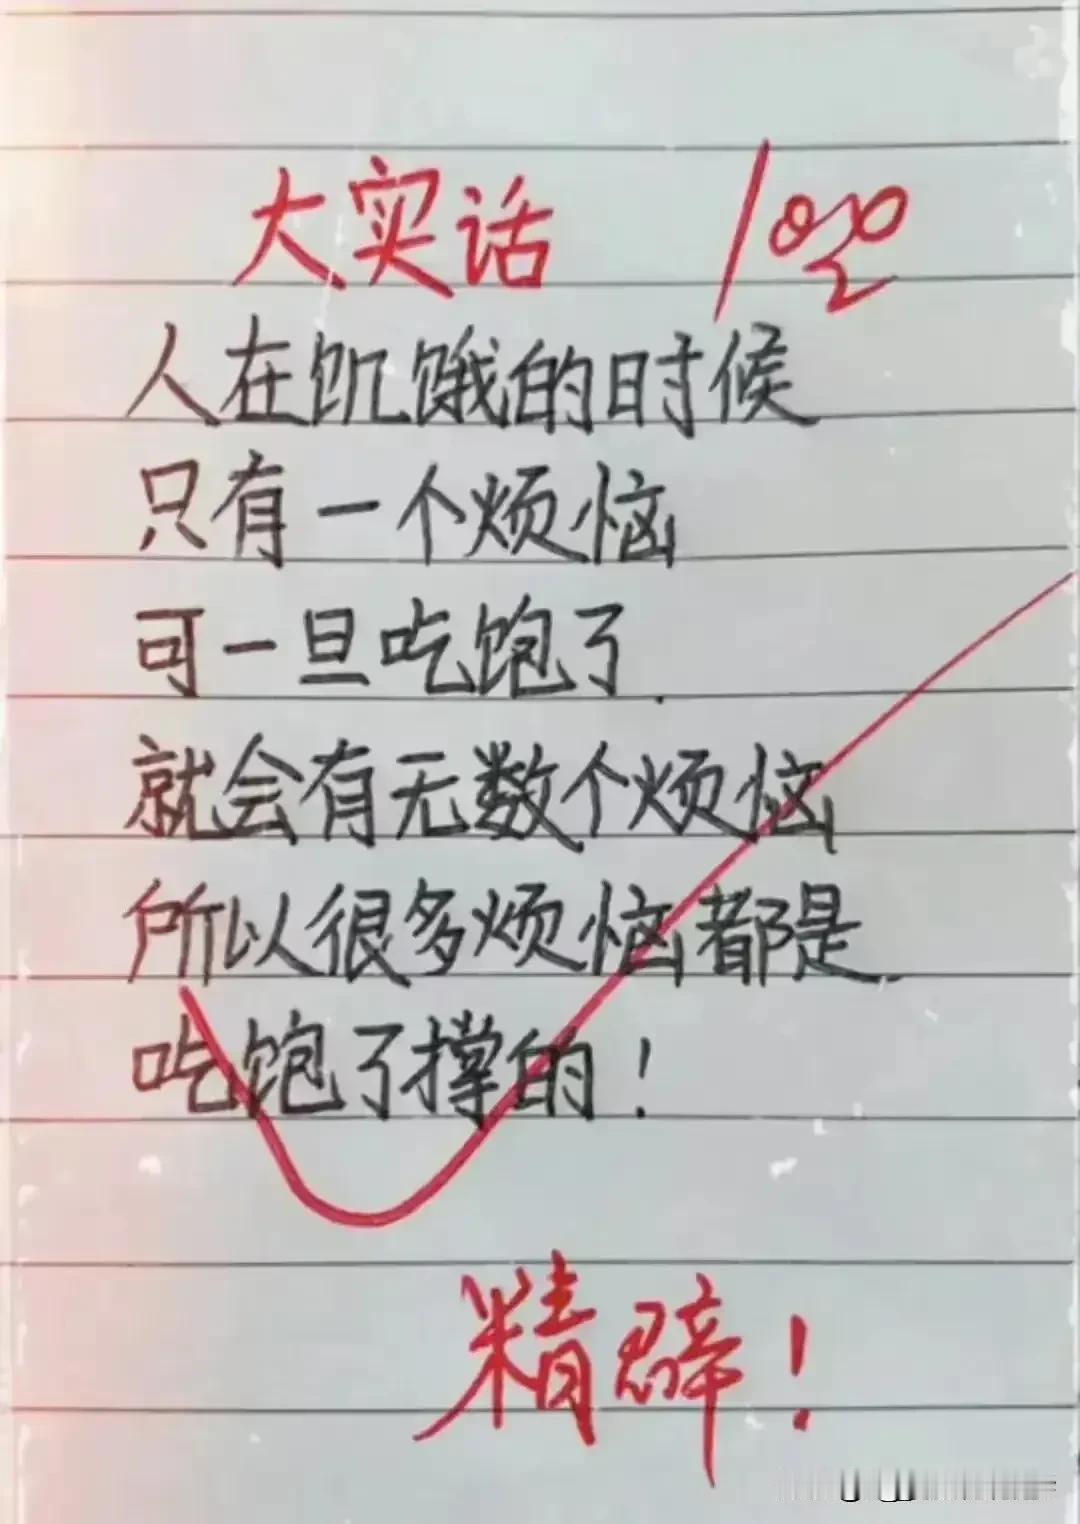 大实话 100
人在饥饿的时候
只有一个烦恼
可一旦吃饱了.
就会有无数个烦恼
所以很多烦恼都是.
吃饱了撑的！
精辟！